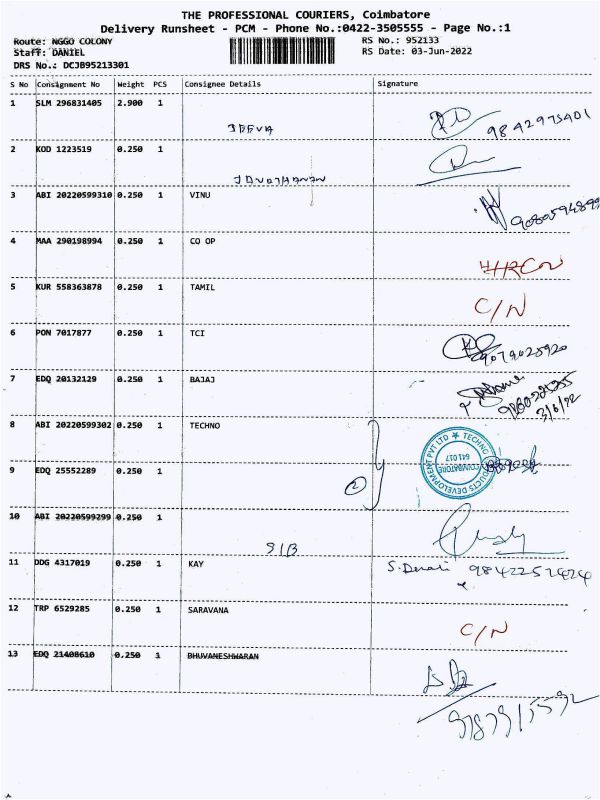 THE PROFESSIONAL COURIERS, Coimbatore
Delivery Runsheet - PCM - Phone No.:0422-3505555 - Page No.:1
Route: NGGO COLONY
RS No.: 952133
Staff: DANIEL
RS Date: 03-Jun-2022
DRS No.: DCJB95213301
S No Consignment No Weight PCS Consignee Details Signature
1 SLM 296831405 2.900 1
JEEVA
9842975401
2 KOD 1223519 0.250 1
JONATHANAN
3 ABI 20220599310 0.250 1 VINU
4 MAA 290198994 0.250 1 CO OP
5 KUR 558363878 0.250 1 TAMIL
C/N
6 PON 7017877 0.250 1 TCI
9079025920
7 EDQ 20132129 0.250 1 BAJAJ
3/6/22
8 ABI 20220599302 0.250 1 TECHNO
TECHNO PRODUCTS DEVELOPMENT PVT LTD
COIMBATORE
641 017
9 EDQ 25552289 0.250 1
2
10 ABI 20220599299 0.250 1
SIB
11 DDG 4317019 0.250 1 KAY
12 TRP 6529285 0.250 1 SARAVANA
C/N
13 EDQ 21408610 0.250 1 BHUVANESHWARAN